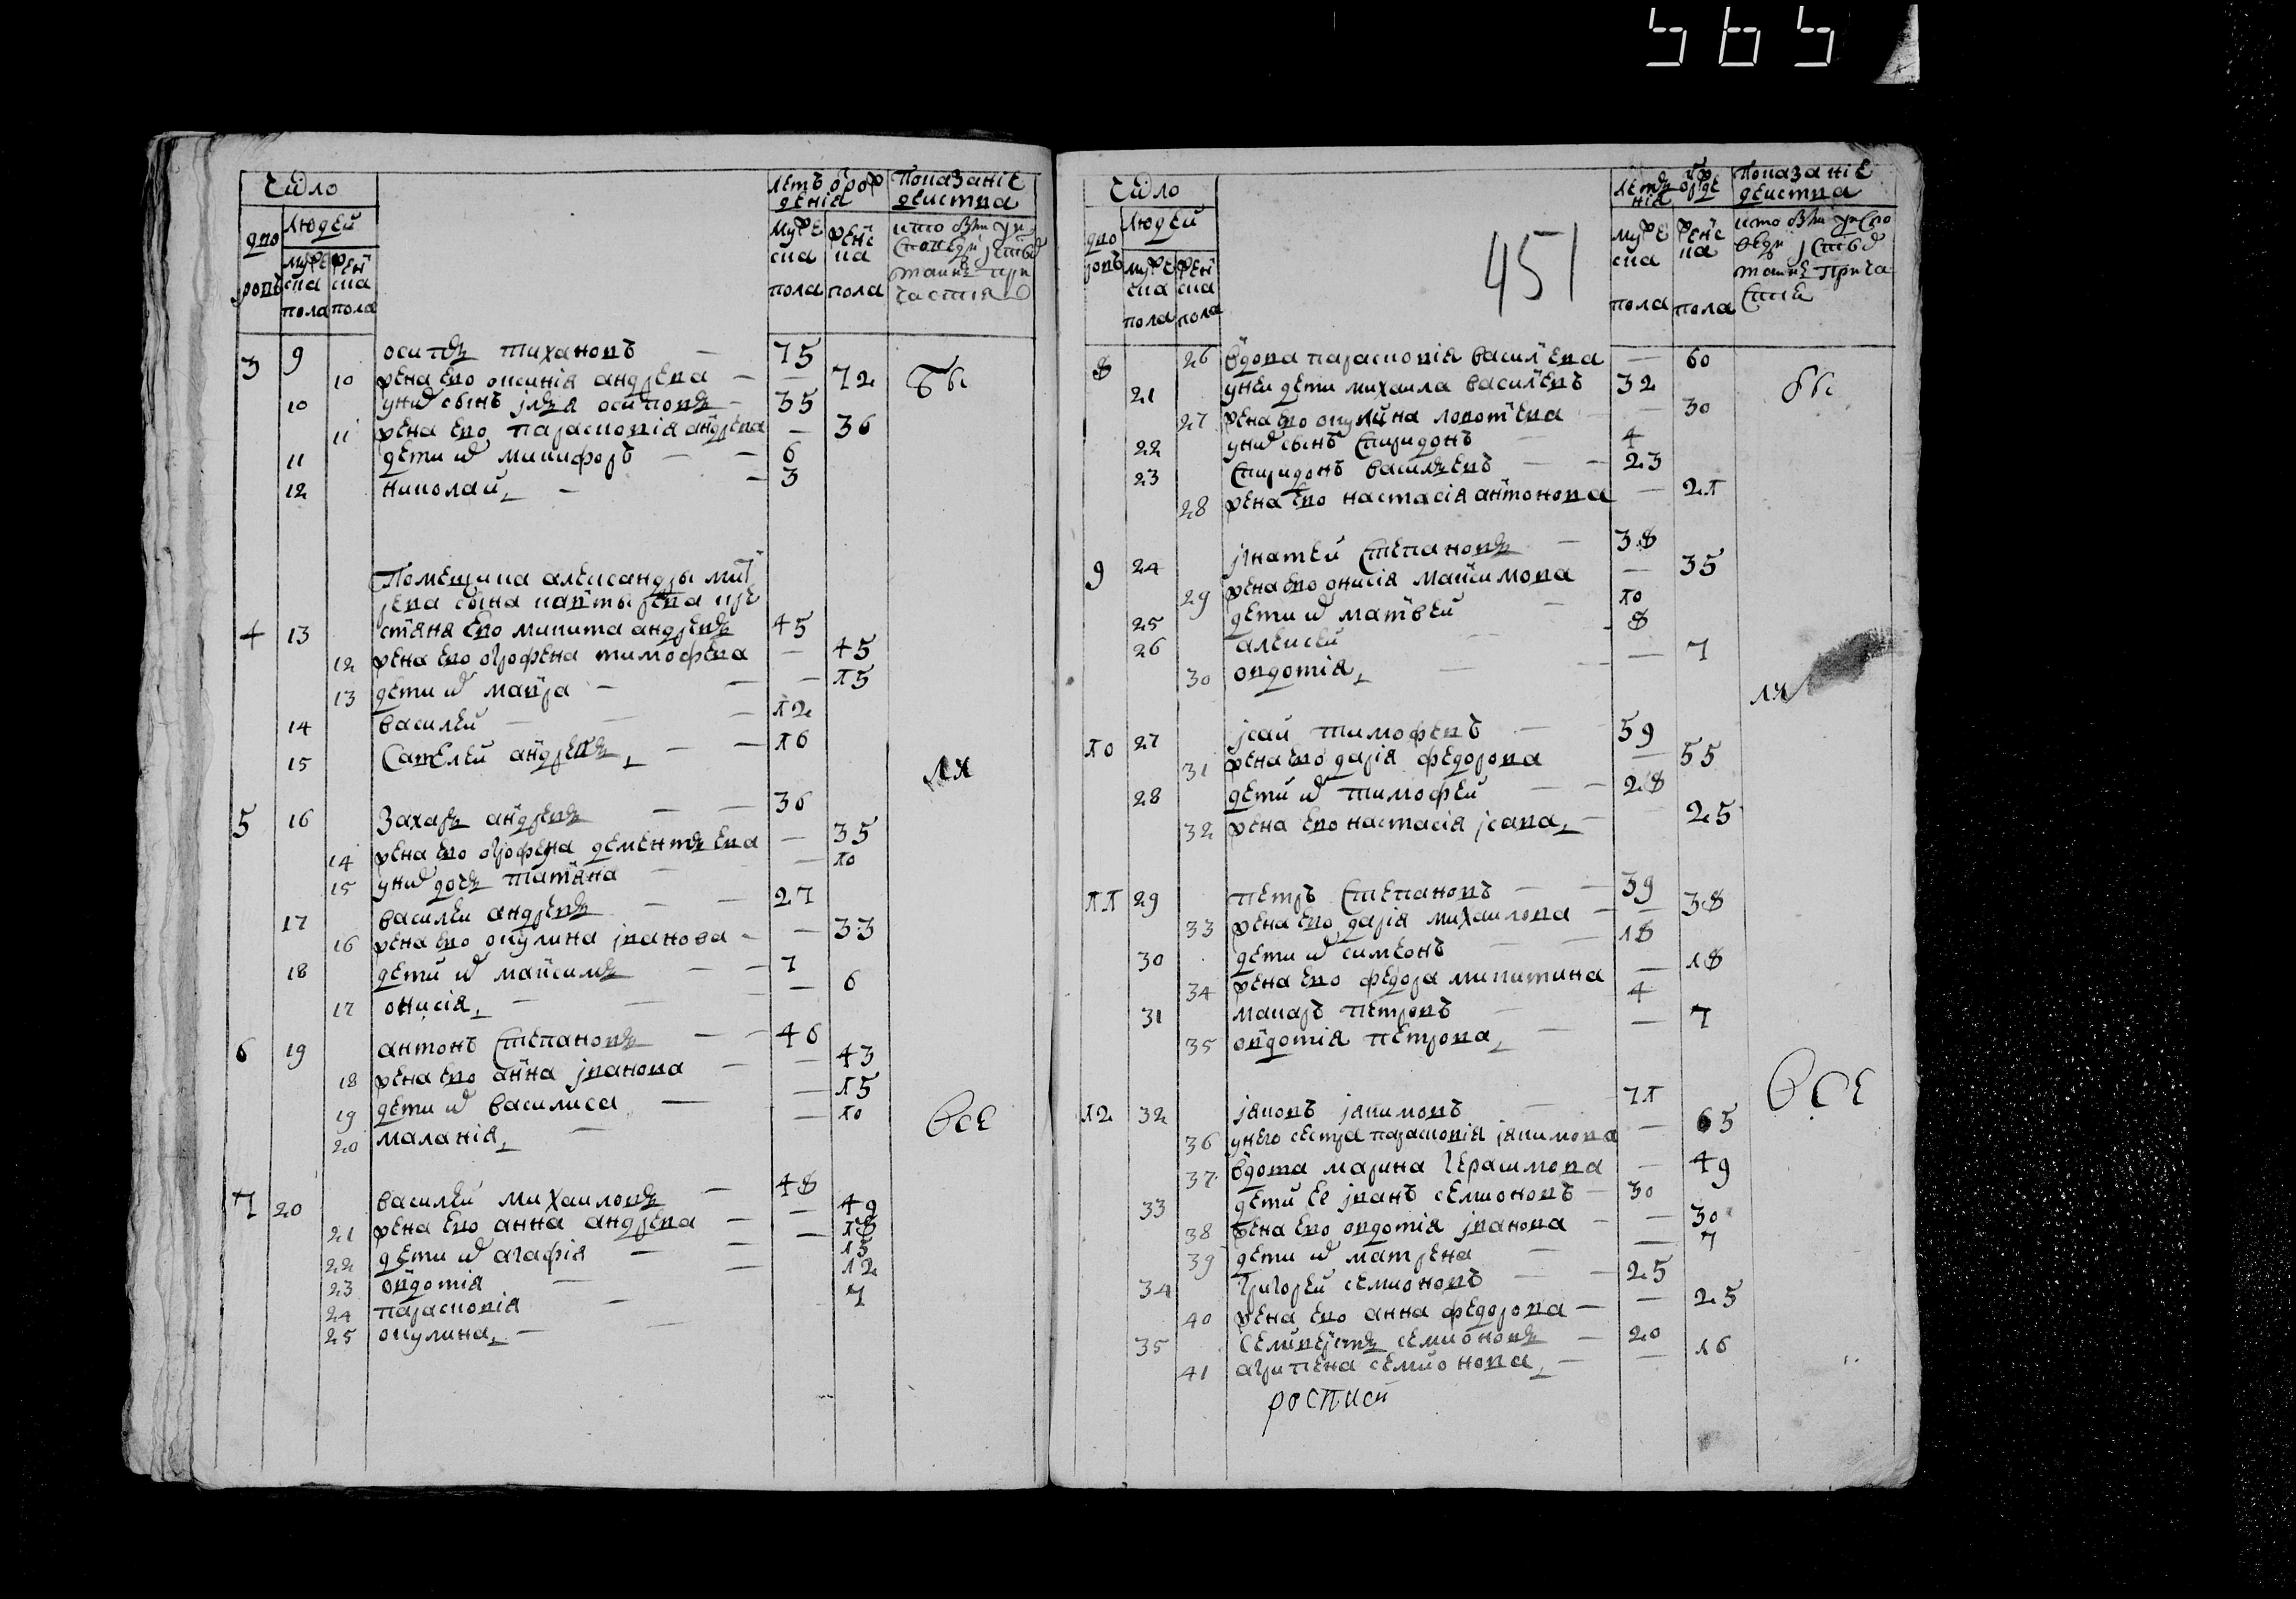 565
Число
Людей
дво
ровъ
муже
ска
пола
жен
ска
пола
летъ о рож
дения
муже
ска
пола
женс
ка
пола
Показаніе
действа
кто были у ис
поведи и святыхъ
таинъ при
частия
3 9 осипъ тихановъ — 75
10 жена ево оксинія андрева — — 72
бы
10 у них сынъ илья осиповъ — 35
11 жена ево парасковія андрева — 36
11 дети их никифоръ — — 6
12 николай — — 3
Помещика александры мит
рева сына
кре
4 13 стяня ево никита андревъ 45
12 жена ево огрофена тимофева — 45
13 дети их мавра — — — 15
14 василей — — — 12
15 Савелей андревъ — — 16
ли
5 16 Захаръ андревъ — — 36
14 жена ево огрофена дементьева — 35
15 у них дочь татяна — — 10
17 василей андревъ — — 27
16 жена ево окулина іванова — — 33
18 дети их максимъ — — 7
17 онисія — — — 6
6 19 антонъ Степановъ — — 46
18 жена ево анна іванова — — 43
19 дети их василиса — — 15
20 маланія — — 10
все
7 20 василей михаиловъ — 48
21 жена ево анна андрева — — 49
22 дети их агафія — — 18
23 овдотія — — 15
24 парасковія — 12
25 окулина — — 7
Число
Людей
дво
ровъ
муже
ска
пола
жен
ска
пола
451
летъ о рожде
нія
муже
ска
пола
женс
ка
пола
Показаніе
действа
кто были у испо
веди и святыхъ
таинъ прича
стия
8 26 вдова парасковія василева — 60
21 у неи дети михаила василевъ 32
бы
27 жена ево окулина — 30
22 у них сынъ Спиридонъ — 4
23 Спиридонъ васильевъ — — 23
28 жена ево настасія антонова — 21
9 24 Игнатей Степановъ — 38
29 жена ево онисія максимова — 35
25 дети их матвей — 10
26 алексей — — 8
30 овдотія — — — 7
ли
10 27 исай тимофевъ — 59
31 жена ево дарія федорова — 55
28 дети их тимофей — — 28
32 жена ево настасія ісава — 25
11 29 петръ Степановъ — — 39
33 жена ево дарія михаилова — — 38
30 дети их симеонъ — — 18
34 жена ево федора никитина — 18
31 макаръ петровъ — 4
35 овдотія петрова — — 7
12 32 яковъ якимовъ — 71
все
36 у него сестра парасковія якимова — 65
37 вдова марина герасимова — 49
33 дети ее іванъ семионовъ — 30
38 жена ево овдотія іванова — — 30
39 дети их матрена — — 7
34 григорей семионовъ — — 25
40 жена ево анна федорова — — 25
35 семионовъ — 20
41 агрипена семионова — — 16
росписи